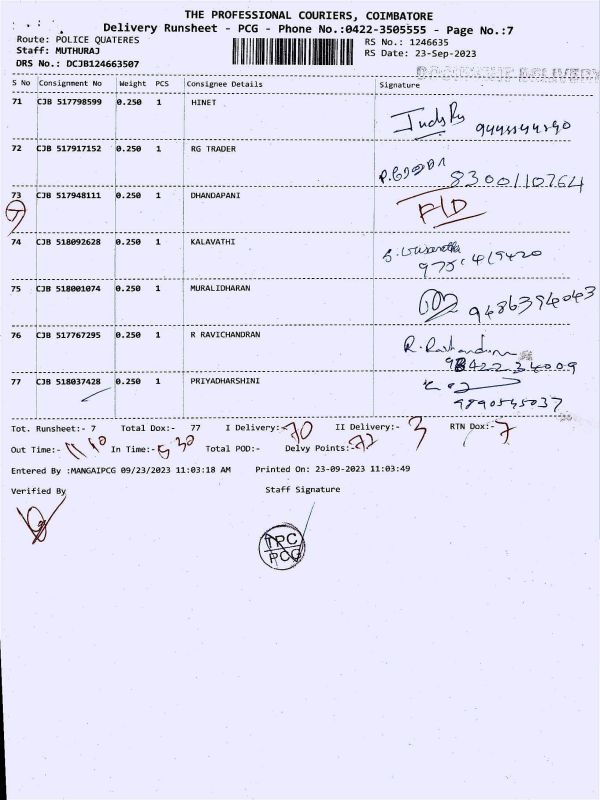 THE PROFESSIONAL COURIERS, COIMBATORE
Delivery Runsheet - PCG - Phone No.:0422-3505555 - Page No.:7
Route: POLICE QUATERES RS No.: 1246635
Staff: MUTHURAJ RS Date: 23-Sep-2023
DRS No.: DCJB124663507
S No Consignment No Weight PCS Consignee Details Signature
71 CJB 517798599 0.250 1 HINET
72 CJB 517917152 0.250 1 RG TRADER
8300110764
73 CJB 517948111 0.250 1 DHANDAPANI F/D
74 CJB 518092628 0.250 1 KALAVATHI
75 CJB 518001074 0.250 1 MURALIDHARAN
9486394043
76 CJB 517767295 0.250 1 R RAVICHANDRAN
77 CJB 518037428 0.250 1 PRIYADHARSHINI
9890545037
Tot. Runsheet:- 7 Total Dox:- 77 I Delivery:- 70 II Delivery:- 3 RTN Dox:- 7
Out Time:- 11 10 In Time:- 5 30 Total POD:- Delvy Points:- 72
Entered By :MANGAIPCG 09/23/2023 11:03:18 AM Printed On: 23-09-2023 11:03:49
Verified By Staff Signature
TPC
PCG